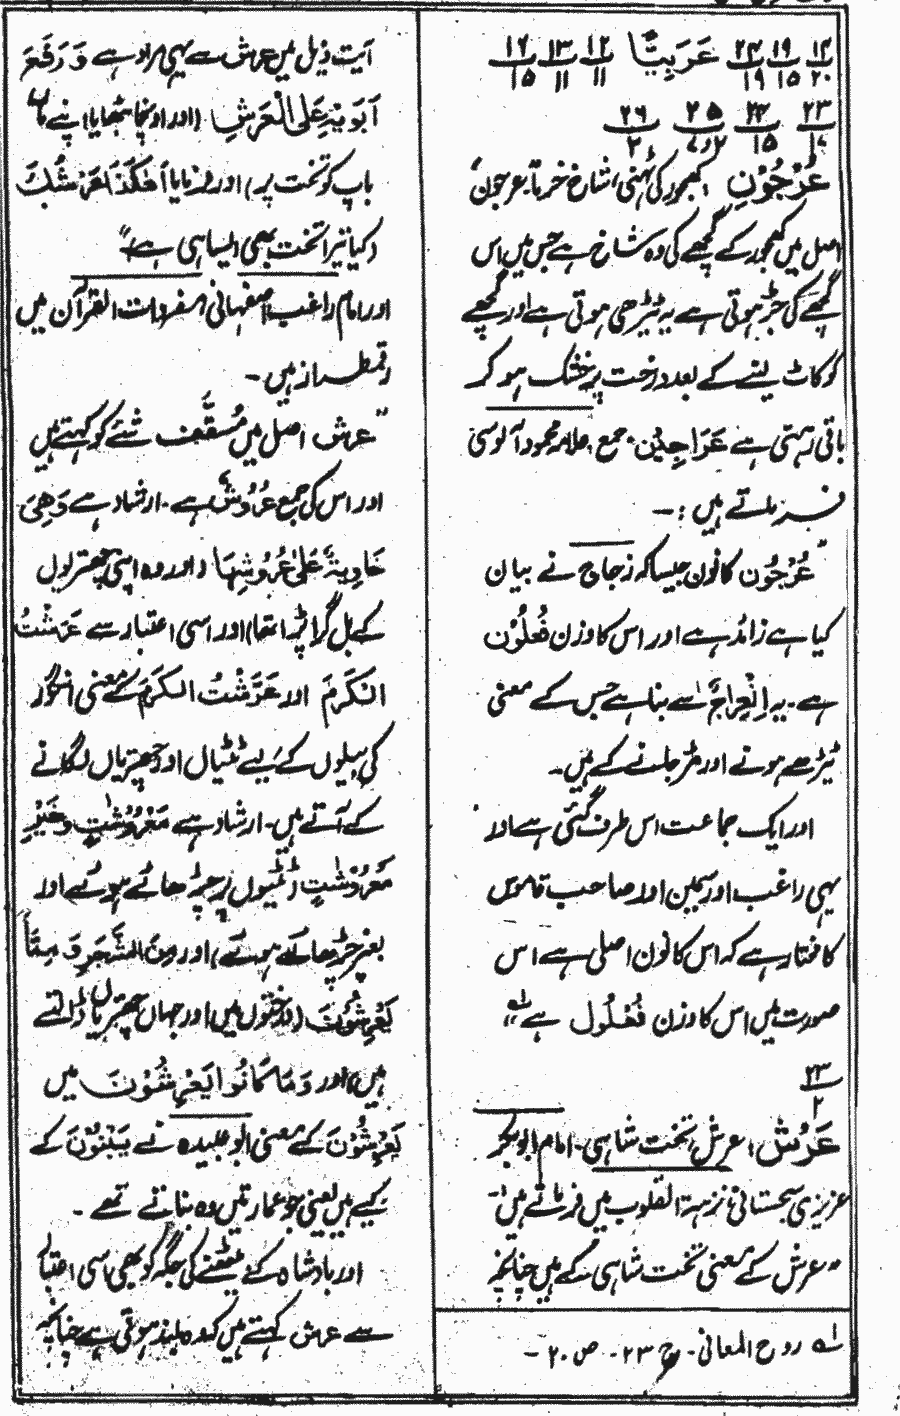 ۱۴/۲۰ ۱۹/۱۵ ۲۴/۱۹ عَرَبِيًّا ۱۲/۱۱ ۱۳/۱۱ ۱۶/۱۵
۲۳/۱۷ ۲۲/۱۵ ۲۵/۲و۷ ۲۶/۲
عُرْجُوْنِ ، کھجور کی ٹہنی، شاخ خرما، عرجون
اصل میں کھجور کے گچھے کی وہ شاخ ہے جس میں اس
گچھے کی جڑ ہوتی ہے یہ ٹیڑھی ہوتی ہے اور گچھے
کو کاٹ لینے کے بعد درخت پر خشک ہو کر
باقی رہتی ہے عَرَاجِيْن جمع، علامہ محمود آلوسی
فرماتے ہیں :-
"عُرْجُون کا نون جیسا کہ زجاج نے بیان
کیا ہے زائد ہے اور اس کا وزن فُعْلُوْن
ہے۔ یہ اِنْعِرَاجٌ سے بنا ہے جس کے معنی
ٹیڑھے ہونے اور مڑ جانے کے ہیں۔
اور ایک جماعت اس طرف گئی ہے اور
یہی راغب اور سمین اور صاحب قاموس
کا مختار ہے کہ اس کا نون اصلی ہے اس
صورت میں اس کا وزن فُعْلُول ہے لہ"
۲۳/۲
عَرْشٌ ، عرش، تخت شاہی۔ امام ابو بکر
عزیزی سجستانی نزہۃ القلوب میں فرماتے ہیں
"عرش کے معنی تخت شاہی کے ہیں چنانچہ
لہ روح المعانی۔ ج ۲۳۔ ص ۲۰۔
آیت ذیل میں عرش سے یہی مراد ہے وَ رَفَعَ
اَبَوَيْهِ عَلَى الْعَرْشِ (اور اونچا بٹھایا اپنے ماں
باپ کو تخت پر) اور فرمایا اَهٰكَذَا عَرْشُكَ
(کیا تیرا تخت بھی ایسا ہی ہے)"
اور امام راغب اصفہانی مفردات القرآن میں
رقمطراز ہیں۔
"عرش اصل میں مُسَقَّف شے کو کہتے ہیں
اور اس کی جمع عُرُوشٌ ہے۔ ارشاد ہے وَهِيَ
خَاوِيَةٌ عَلٰى عُرُوشِهَا (اور وہ اپنی چھتوں
کے بل گرا پڑا تھا) اور اسی اعتبار سے عَرَشْتُ
الْكَرْمَ اور عَرَّشْتُ الْكَرْمَ کے معنی انگور
کی بیلوں کے لیے ٹٹیاں اور چھتریاں لگانے
کے آتے ہیں۔ ارشاد ہے مَعْرُوْشٰتٍ وَغَيْرَ
مَعْرُوْشٰتٍ (ٹٹیوں پر چڑھائے ہوئے اور
بغیر چڑھائے ہوئے) اور وَمِنَ الشَّجَرِ وَ مِمَّا
يَعْرِشُوْنَ (درختوں میں اور جہاں چھتریاں ڈالتے
ہیں) اور وَمَا كَانُوا يَعْرِشُوْنَ میں
يَعْرِشُوْنَ کے معنی ابو عبیدہ نے يَبْنُوْنَ کے
کیے ہیں یعنی جو عمارتیں وہ بناتے تھے۔
اور بادشاہ کے بیٹھنے کی جگہ کو بھی اسی اعتبار
سے عرش کہتے ہیں کہ وہ بلند ہوتی ہے چنانچہ